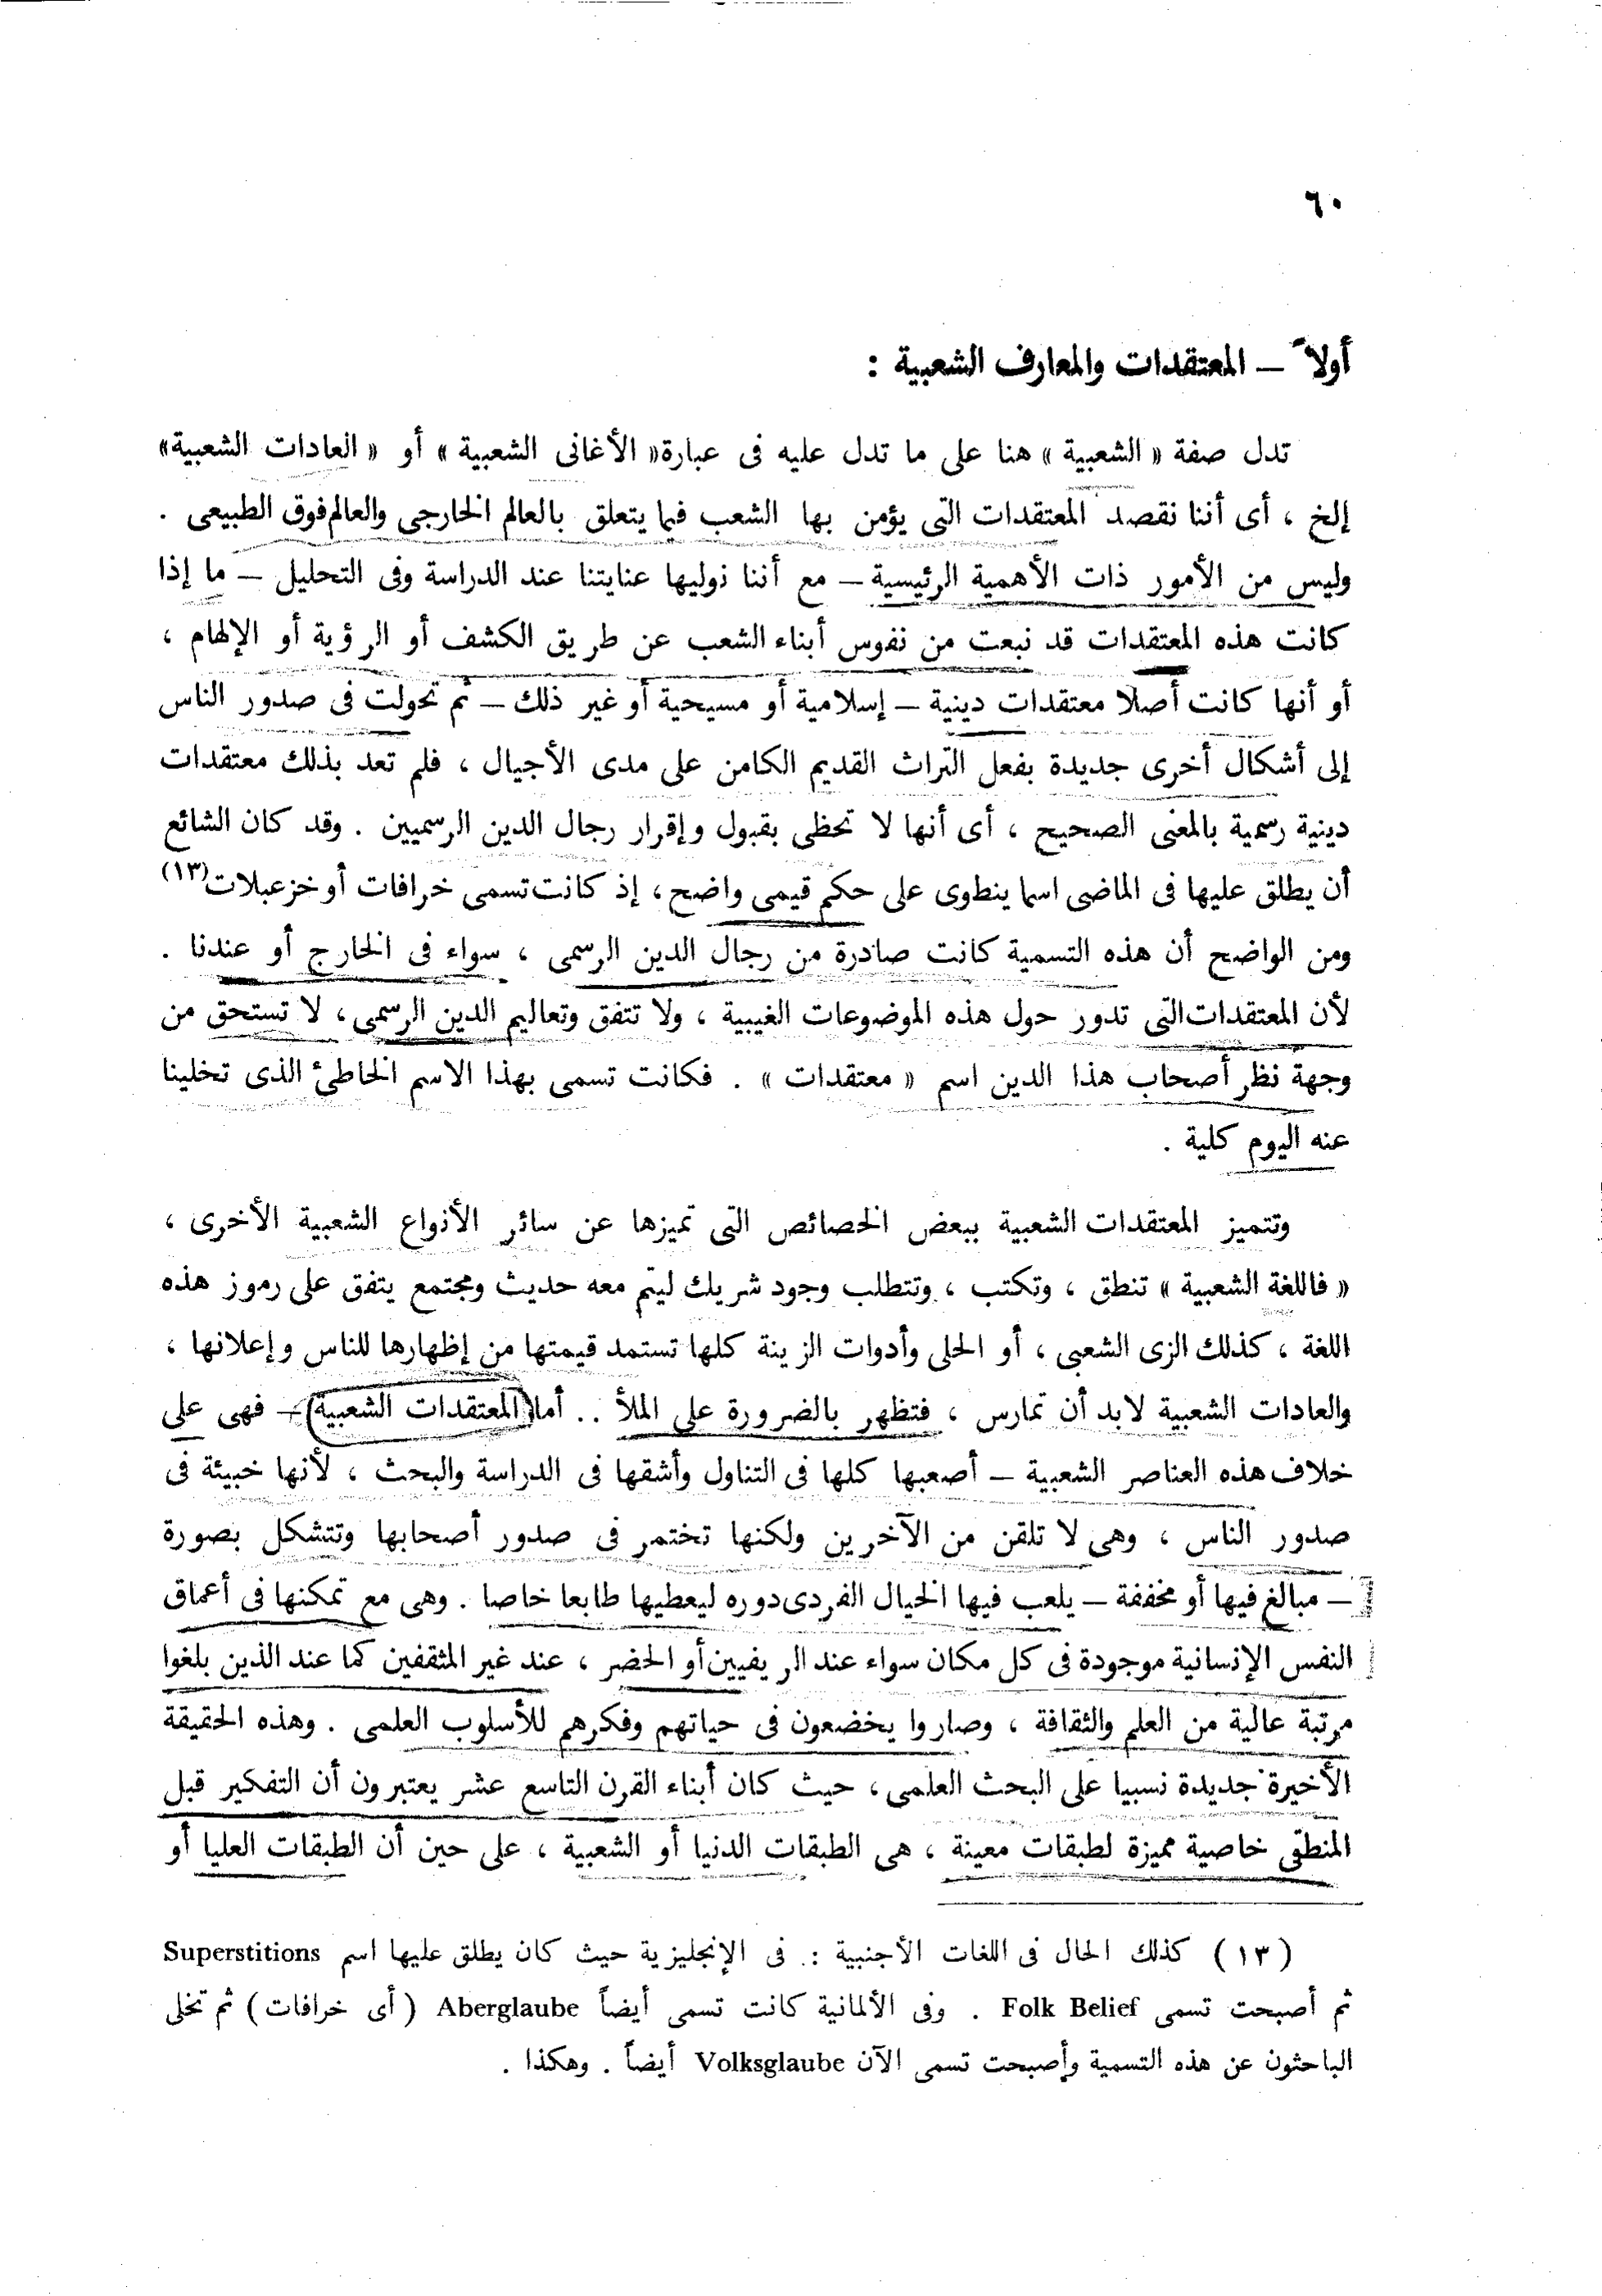 ٦٠
أولاً – المعتقدات والمعارف الشعبية :
تدل صفة « الشعبية » هنا على ما تدل عليه فى عبارة« الأغانى الشعبية » أو « العادات الشعبية»
إلخ ، أى أننا نقصد المعتقدات التى يؤمن بها الشعب فيما يتعلق بالعالم الخارجى والعالم فوق الطبيعى .
وليس من الأمور ذات الأهمية الرئيسية – مع أننا نوليها عنايتنا عند الدراسة وفى التحليل – ما إذا
كانت هذه المعتقدات قد نبعت من نفوس أبناء الشعب عن طريق الكشف أو الرؤية أو الإلهام ،
أو أنها كانت أصلا معتقدات دينية – إسلامية أو مسيحية أو غير ذلك – ثم تحولت فى صدور الناس
إلى أشكال أخرى جديدة بفعل التراث القديم الكامن على مدى الأجيال ، فلم تعد بذلك معتقدات
دينية رسمية بالمعنى الصحيح ، أى أنها لا تحظى بقبول وإقرار رجال الدين الرسميين . وقد كان الشائع
أن يطلق عليها فى الماضى اسما ينطوى على حكم قيمى واضح ، إذ كانت تسمى خرافات أو خزعبلات(١٣)
ومن الواضح أن هذه التسمية كانت صادرة من رجال الدين الرسمى ، سواء فى الخارج أو عندنا .
لأن المعتقدات التى تدور حول هذه الموضوعات الغيبية ، ولا تتفق وتعاليم الدين الرسمى ، لا تستحق من
وجهة نظر أصحاب هذا الدين اسم « معتقدات » . فكانت تسمى بهذا الاسم الخاطئ الذى تخلينا
عنه اليوم كلية .
وتتميز المعتقدات الشعبية ببعض الخصائص التى تميزها عن سائر الأنواع الشعبية الأخرى ،
« فاللغة الشعبية » تنطق ، وتكتب ، وتتطلب وجود شريك ليتم معه حديث ومجتمع يتفق على رموز هذه
اللغة ، كذلك الزى الشعبى ، أو الحلى وأدوات الزينة كلها تستمد قيمتها من إظهارها للناس وإعلانها ،
والعادات الشعبية لابد أن تمارس ، فتظهر بالضرورة على الملأ .. أما المعتقدات الشعبية – فهى على
خلاف هذه العناصر الشعبية – أصعبها كلها فى التناول وأشقها فى الدراسة والبحث ، لأنها خبيئة فى
صدور الناس ، وهى لا تلقن من الآخرين ولكنها تختمر فى صدور أصحابها وتتشكل بصورة
– مبالغ فيها أو مخففة – يلعب فيها الخيال الفردى دوره ليعطيها طابعا خاصا . وهى مع تمكنها فى أعماق
النفس الإنسانية موجودة فى كل مكان سواء عند الريفيين أو الحضر ، عند غير المثقفين كما عند الذين بلغوا
مرتبة عالية من العلم والثقافة ، وصاروا يخضعون فى حياتهم وفكرهم للأسلوب العلمى . وهذه الحقيقة
الأخيرة جديدة نسبيا على البحث العلمى ، حيث كان أبناء القرن التاسع عشر يعتبرون أن التفكير قبل
المنطقى خاصية مميزة لطبقات معينة ، هى الطبقات الدنيا أو الشعبية ، على حين أن الطبقات العليا أو
(١٣) كذلك الحال فى اللغات الأجنبية : فى الإنجليزية حيث كان يطلق عليها اسم Superstitions
ثم أصبحت تسمى Folk Belief . وفى الألمانية كانت تسمى أيضاً Aberglaube (أى خرافات) ثم تخلى
الباحثون عن هذه التسمية وأصبحت تسمى الآن Volksglaube أيضاً . وهكذا .